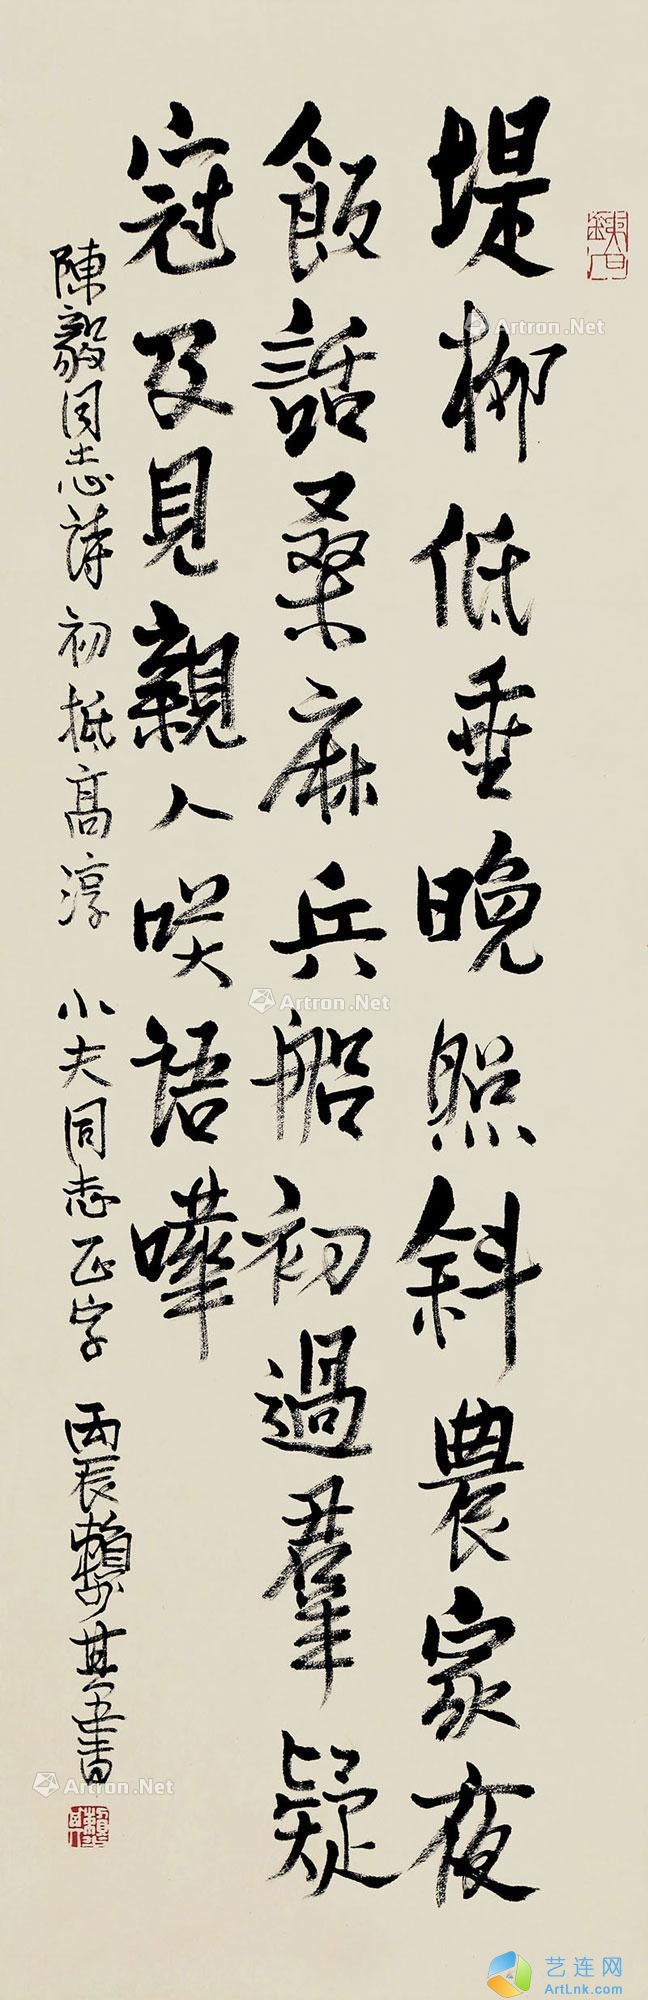 堤柳低垂晚照斜農家夜
飯話桑麻兵船初過羣疑
寇及見親人咲語嘩
陳毅同志詩初抵高淳 小夫同志正字 丙辰賴少其並書
Artron.Net
Artron.Net
Artron.Net
艺连网
ArtLnk.com